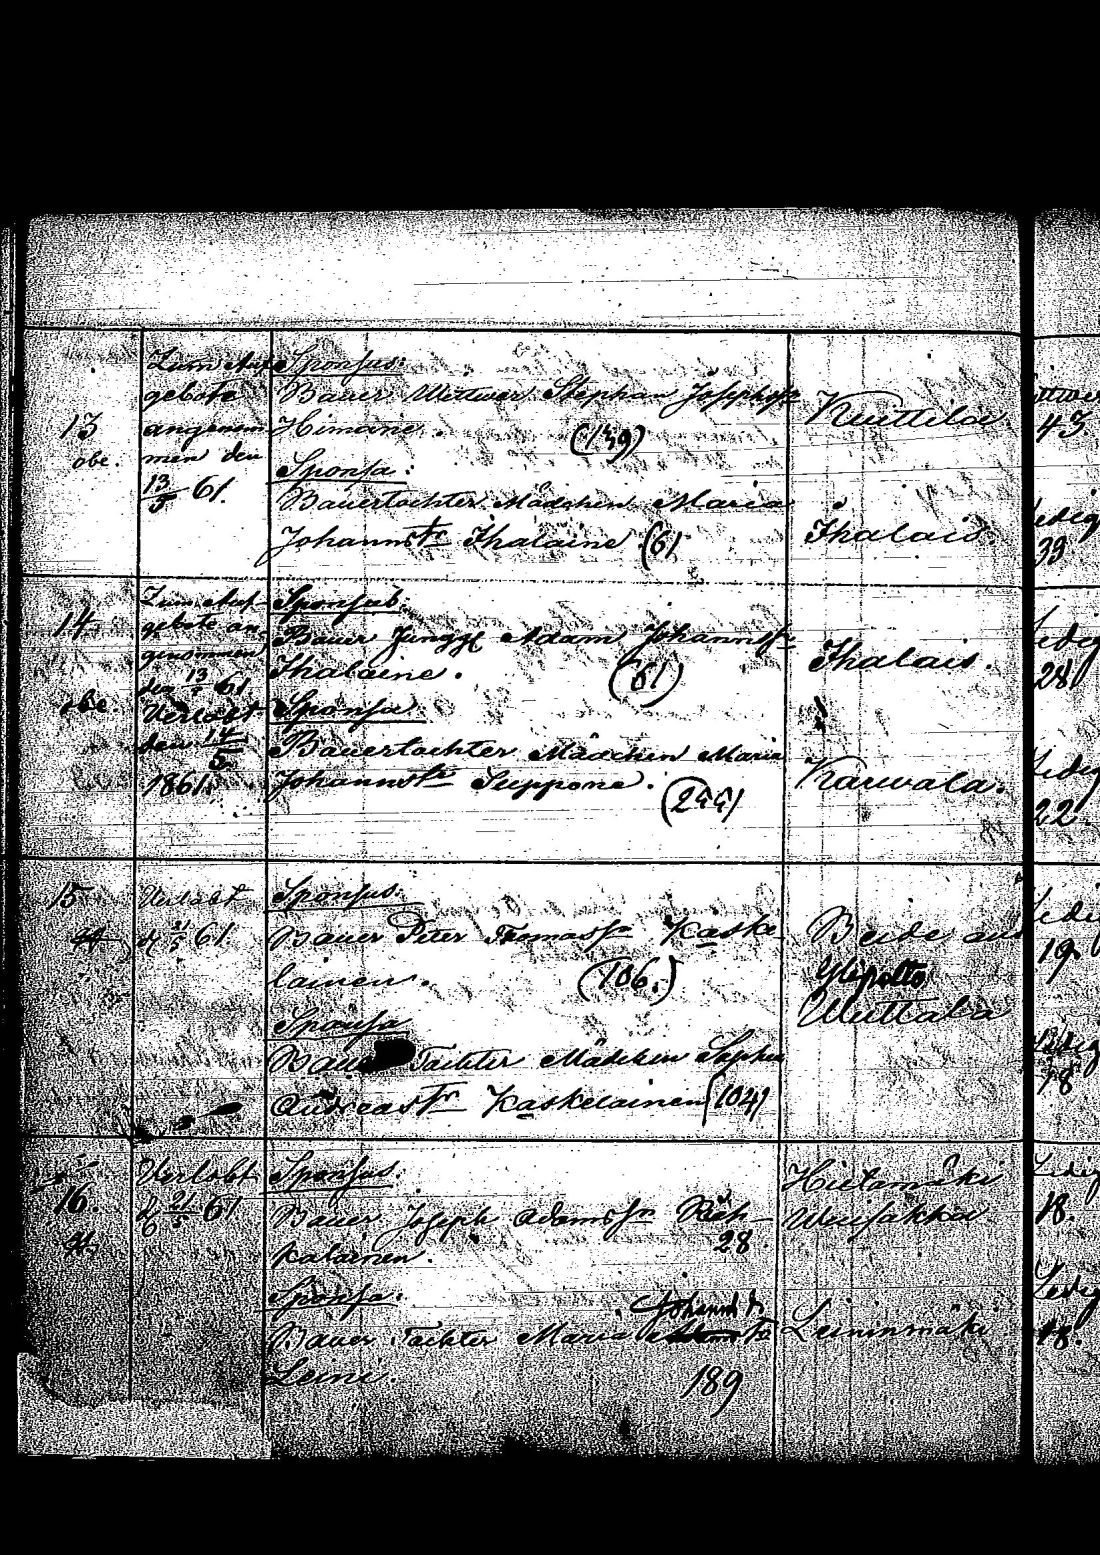 13
obe.
Zum Auf
gebote
angenom
men den
13/5 61.
Sponsus:
Bauer Wittwer Stephan Josephs
Himane. (149)
Sponsa:
Bauertochter Mädchen Maria
Johannstr Ihalaine (61
Kuittila
Ihalais.
43
Ledig
39
14
obe.
Zum Auf-
gebote an-
genommen
den 13/5 61
Verlobt
den 14/5
1861.
Sponsus:
Bauer Junggl Adam Johannssn
Ihalaine. (61)
Sponsa.
Bauertochter Mädchen Maria
Johannstr Seppone. (244)
Ihalais.
Karwala.
Ledig
28
Ledig
22.
15
Verlobt
d 21/5 61
Sponsus:
Bauer Peter Thomassn Kaske
lainen. (106.)
Sponsa
Bauer Tochter Mädchen Sophia
Andreastr Kaskelainen (104)
Beide aus
Ylipolto
Uuttala
Ledig
19.
Ledig
18
16.
Verlobt
d 21/5 61
Sponsus.
Bauer Joseph Adamssn
kalainen. 28
Sponsa.
Johann
Bauer Tochter Maria
Leini. 189
Hietamäki
Leininmäki
Ledig
18.
Ledig
18.